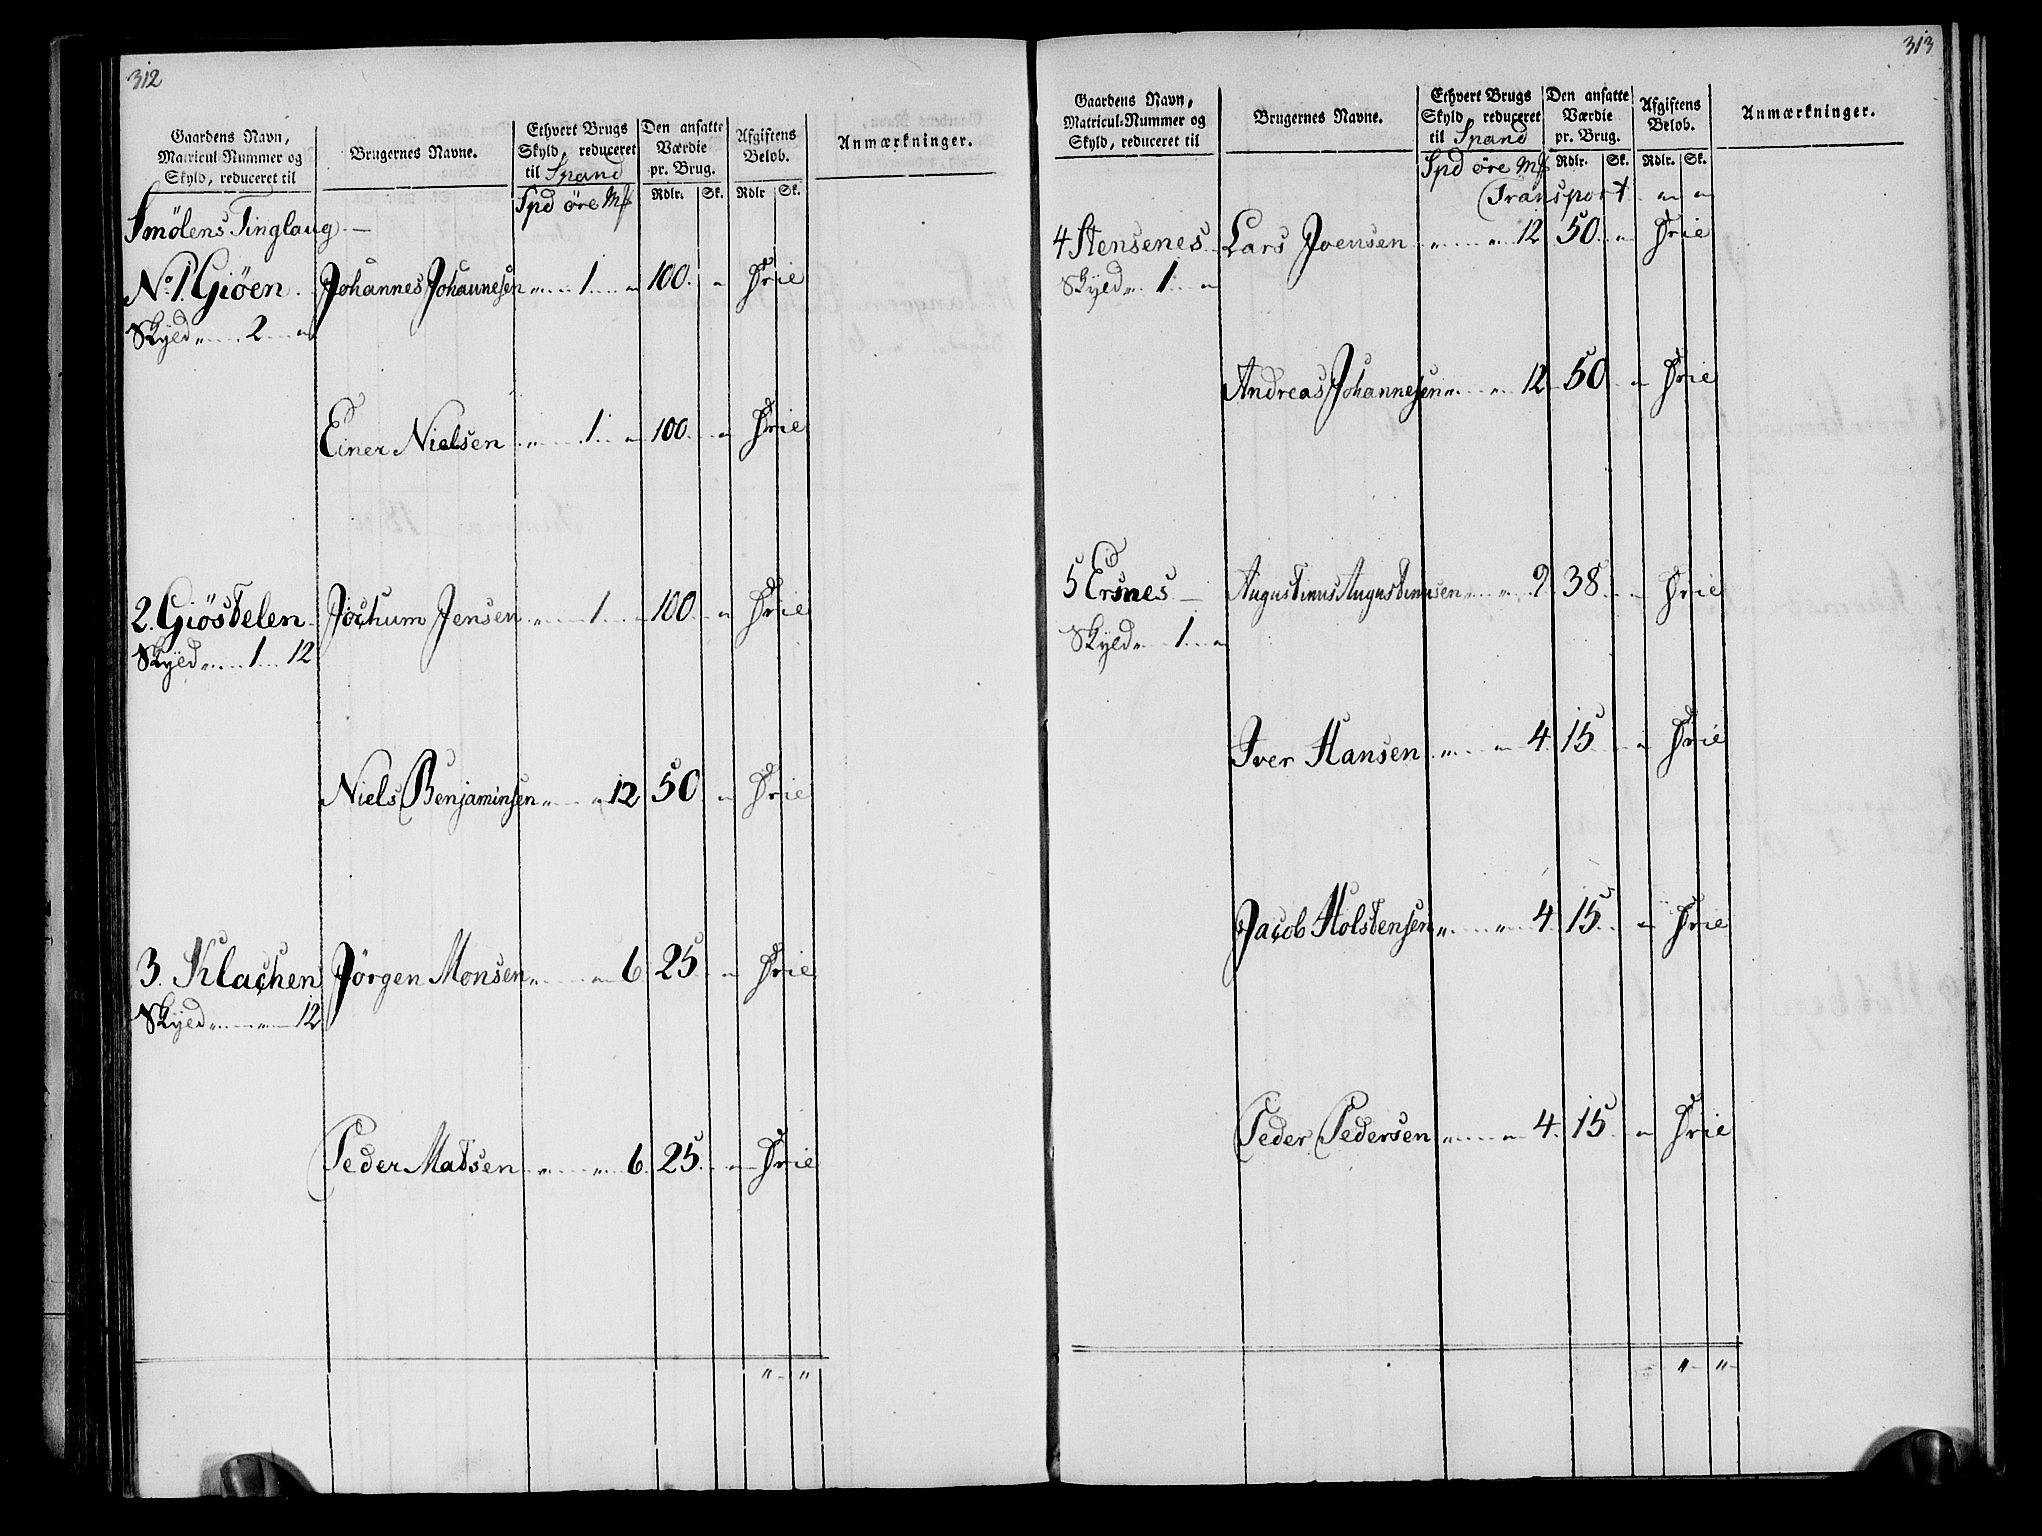 312
Gaardens Navn, Matricul-Nummer og Skyld, reduceret til | Brugernes Navne. | Ethvert Brugs Skyld, reduceret til Spand | Den ansatte Værdie pr. Brug. | Afgiftens Beløb. | Anmærkninger.
Spd øre Mk | Rdlr. Sk. | Rdlr Sk.
Smølens Tinglaug —
No. 1. Giøen Johannes Johannesen " 1 " 100 " Frie
Skyld " 2 "
Einer Nielsen " 1 " 100 " Frie
2. Giöstelen Jochum Jensen " 1 " 100 " Frie
Skyld " 1 12
Niels Benjaminsen " " 12 50 " Frie
3. Klachen Jörgen Monsen " " 6 25 " Frie
Skyld " " 12
Peder Matsen " " 6 25 " Frie
" "
313
Gaardens Navn, Matricul-Nummer og Skyld, reduceret til | Brugernes Navne. | Ethvert Brugs Skyld, reduceret til Spand | Den ansatte Værdie pr. Brug. | Afgiftens Beløb. | Anmærkninger.
Spd øre Mk | Rdlr. Sk. | Rdlr. Sk.
Transport " "
4 Stensenes Lars Joensen " " 12 50 " Frie
Skyld " 1 "
Andreas Johannesen " " 12 50 " Frie
5 Ersnes — Augustinus Augustinusen " " 9 38 " Frie
Skyld " 1 "
Iver Hansen " " 4 15 " Frie
Jacob Holstensen " " 4 15 " Frie
Peder Pedersen " " 4 15 " Frie
" "